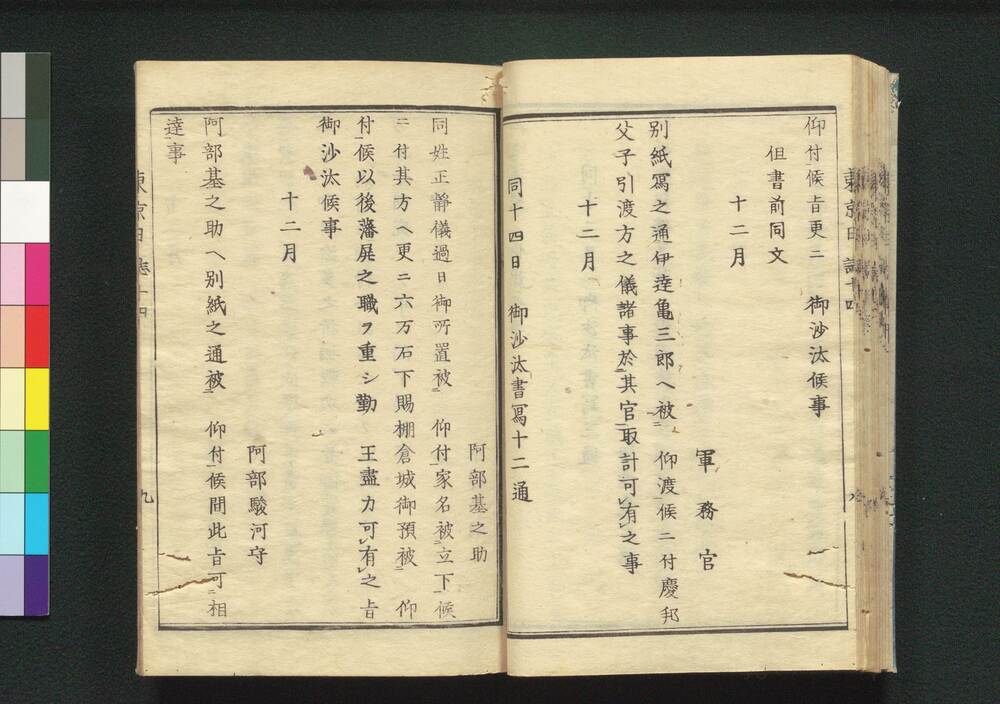 仰付候旨更ニ 御沙汰候事
但書前同文
十二月
軍務官
別紙寫之通伊達亀三郎ヘ被 仰渡候ニ付慶邦
父子引渡方之儀諸事於其官取計可有之事
十二月
同十四日 御沙汰書寫十二通
阿部基之助
同姓正静儀過日御所置被 仰付家名被立下候
ニ付其方ヘ更ニ六万石下賜棚倉城御預被 仰
付候以後藩屏之職ヲ重シ勤 王盡力可有之旨
御沙汰候事
十二月
阿部駿河守
阿部基之助ヘ別紙之通被 仰付候間此旨可相
達事
東京日誌十四
九